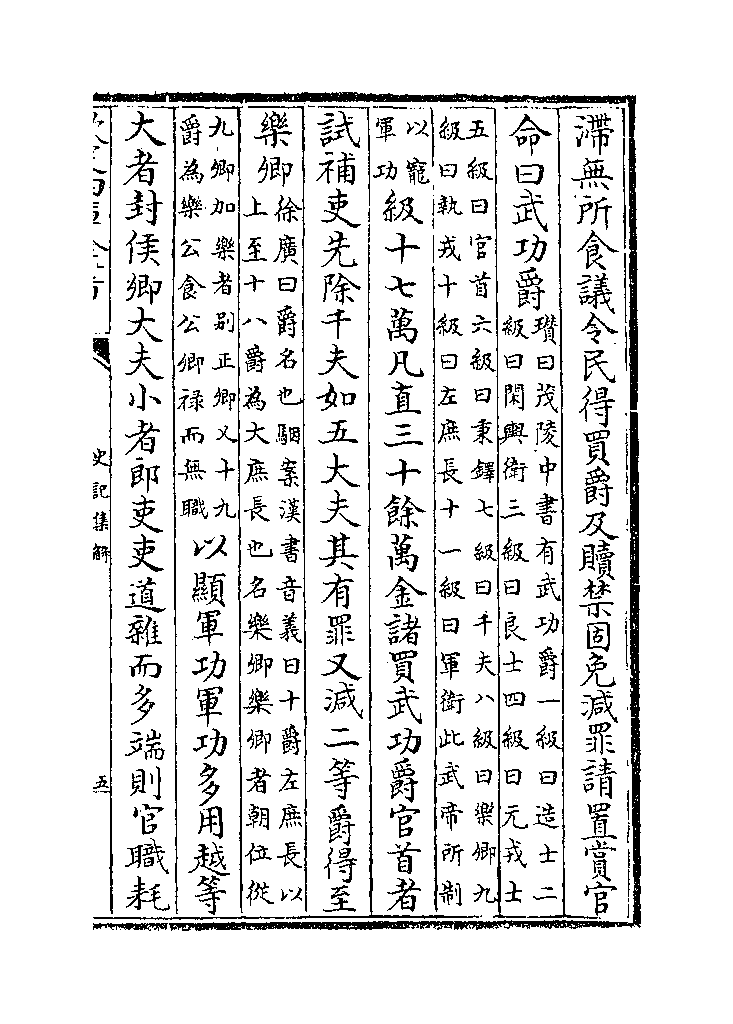 滯無所食議令民得買爵及贖禁固免減罪請置賞官
命曰武功爵
瓚曰茂陵中書有武功爵一級曰造士二
級曰閑興衛三級曰良士四級曰元戎士
五級曰官首六級曰秉鐸七級曰千夫八級曰樂卿九
級曰執戎十級曰左庶長十一級曰軍衛此武帝所制
以寵
軍功
級十七萬凡直三十餘萬金諸買武功爵官首者
試補吏先除千夫如五大夫其有罪又減二等爵得至
樂卿
徐廣曰爵名也駰案漢書音義曰十爵左庶長以
上至十八爵為大庶長也名樂卿樂卿者朝位從
九卿加樂者别正卿又十九
爵為樂公食公卿禄而無職
以顯軍功軍功多用越等
大者封侯卿大夫小者郎吏吏道雜而多端則官職耗
史記集解
五